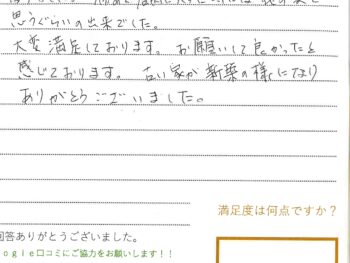 思うぐらいの出来でした。
大変満足しております。お願いして良かったと
感じております。古い家が新築の様になり
ありがとうございました。
満足度は何点ですか？
回答ありがとうございました。
ogle口コミにご協力をお願いします！！